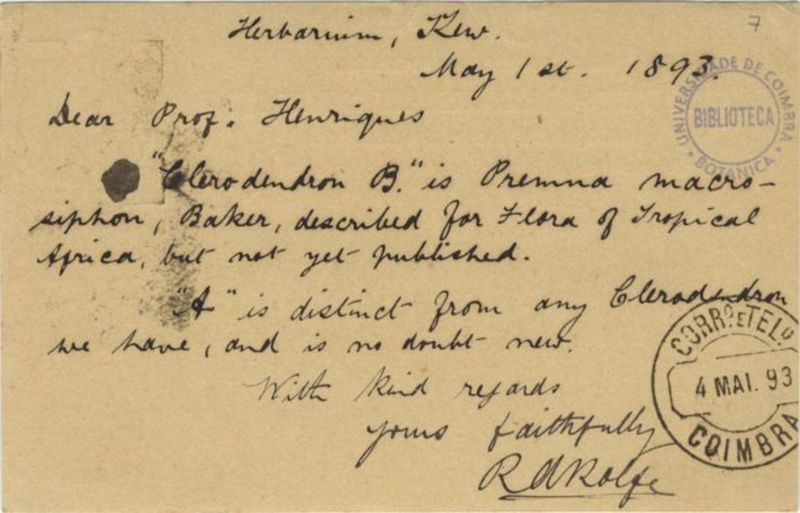 7
Herbarium, Kew.
May 1st. 1893.
UNIVERSIDADE DE COIMBRA
BIBLIOTECA
BOTANICA
Dear Prof. Henriques
"Clerodendron B." is Premna macro-
siphon, Baker, described for Flora of Tropical
Africa, but not yet published.
"A" is distinct from any Clerodendron
we have, and is no doubt new.
With kind regards
yours faithfully
R A Rolfe
CORRO. E TELO.
4 MAI. 93
COIMBRA